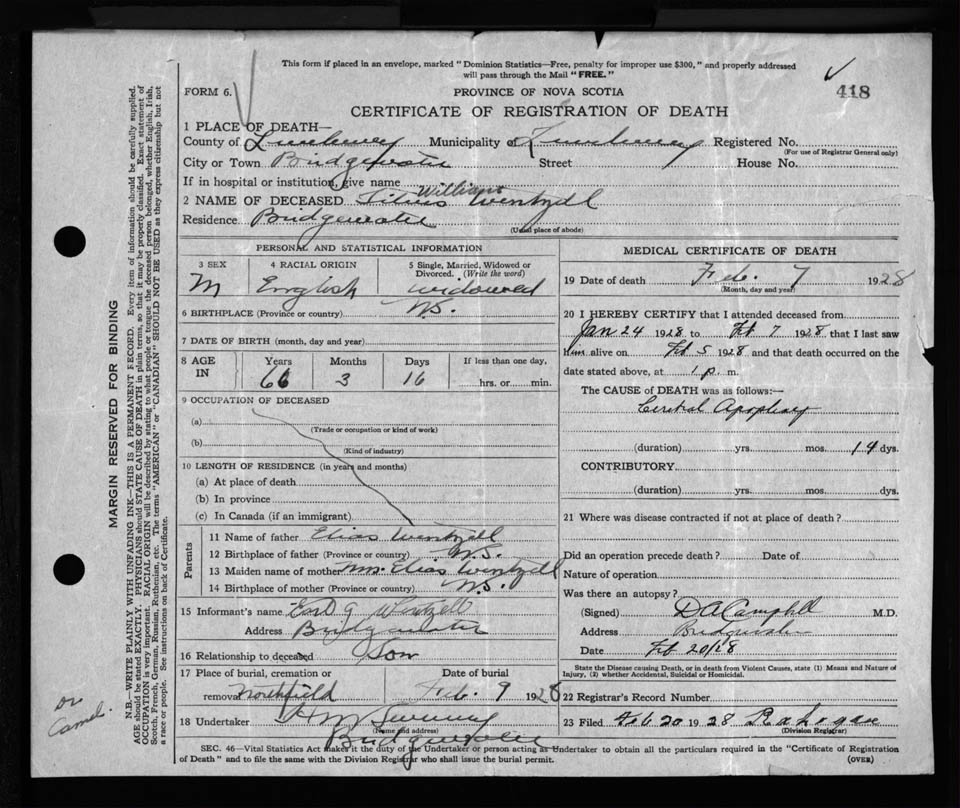 This form if placed in an envelope, marked "Dominion Statistics—Free, penalty for improper use $300," and properly addressed
will pass through the Mail "FREE."
FORM 6.
PROVINCE OF NOVA SCOTIA
418
CERTIFICATE OF REGISTRATION OF DEATH
1 PLACE OF DEATH—
County of Lunenburg Municipality of Lunenburg Registered No.
(For use of Registrar General only)
City or Town Bridgewater Street House No.
If in hospital or institution, give name
William
2 NAME OF DECEASED Titus Wentzell
Residence Bridgewater
(Usual place of abode)
PERSONAL AND STATISTICAL INFORMATION
3 SEX 4 RACIAL ORIGIN 5 Single, Married, Widowed or
Divorced. (Write the word)
M English widowed
6 BIRTHPLACE (Province or country) N.S.
7 DATE OF BIRTH (month, day and year)
8 AGE IN Years Months Days If less than one day,
66 3 16 hrs. or min.
9 OCCUPATION OF DECEASED
(a)
(Trade or occupation or kind of work)
(b)
(Kind of industry)
10 LENGTH OF RESIDENCE (in years and months)
(a) At place of death
(b) In province
(c) In Canada (if an immigrant)
Parents
11 Name of father Elias Wentzell
12 Birthplace of father (Province or country) N.S.
13 Maiden name of mother Mrs. Elias Wentzell
14 Birthplace of mother (Province or country) N.S.
15 Informant's name G Wentzell
Address Bridgewater
16 Relationship to deceased Son
17 Place of burial, cremation or Date of burial
removal Northfield Feb. 9 1928
18 Undertaker
(Name and address)
Bridgewater
MEDICAL CERTIFICATE OF DEATH
19 Date of death Feb. 7 1928
(Month, day and year)
20 I HEREBY CERTIFY that I attended deceased from
Jan 24 1928 to Feb 7 1928 that I last saw
him alive on Feb 5 1928 and that death occurred on the
date stated above, at 1 p. m.
The CAUSE of DEATH was as follows:—
Cerebral Apoplexy
(duration) yrs. mos. 14 dys.
CONTRIBUTORY
(duration) yrs. mos. dys.
21 Where was disease contracted if not at place of death?
Did an operation precede death? Date of
Nature of operation
Was there an autopsy?
(Signed) D A Campbell M.D.
Address Bridgewater
Date Feb 20/28
State the Disease causing Death, or in death from Violent Causes, state (1) Means and Nature of
Injury, (2) whether Accidental, Suicidal or Homicidal.
22 Registrar's Record Number
23 Filed Feb 20 1928
(Division Registrar)
SEC. 46—Vital Statistics Act makes it the duty of the Undertaker or person acting as Undertaker to obtain all the particulars required in the "Certificate of Registration
of Death" and to file the same with the Division Registrar who shall issue the burial permit. (OVER)
MARGIN RESERVED FOR BINDING
N.B.—WRITE PLAINLY WITH UNFADING INK—THIS IS A PERMANENT RECORD. Every item of information should be carefully supplied.
AGE should be stated EXACTLY. PHYSICIANS should STATE CAUSE OF DEATH in plain terms, so that it may be properly classified. Exact statement of
OCCUPATION is very important. RACIAL ORIGIN will be described by stating to what people or tongue the deceased person belonged, whether English, Irish,
Scotch, French, German, Russian, Ruthenian, etc. The terms "AMERICAN" or "CANADIAN" SHOULD NOT BE USED as they express citizenship but not
a race or people. See instructions on back of Certificate.